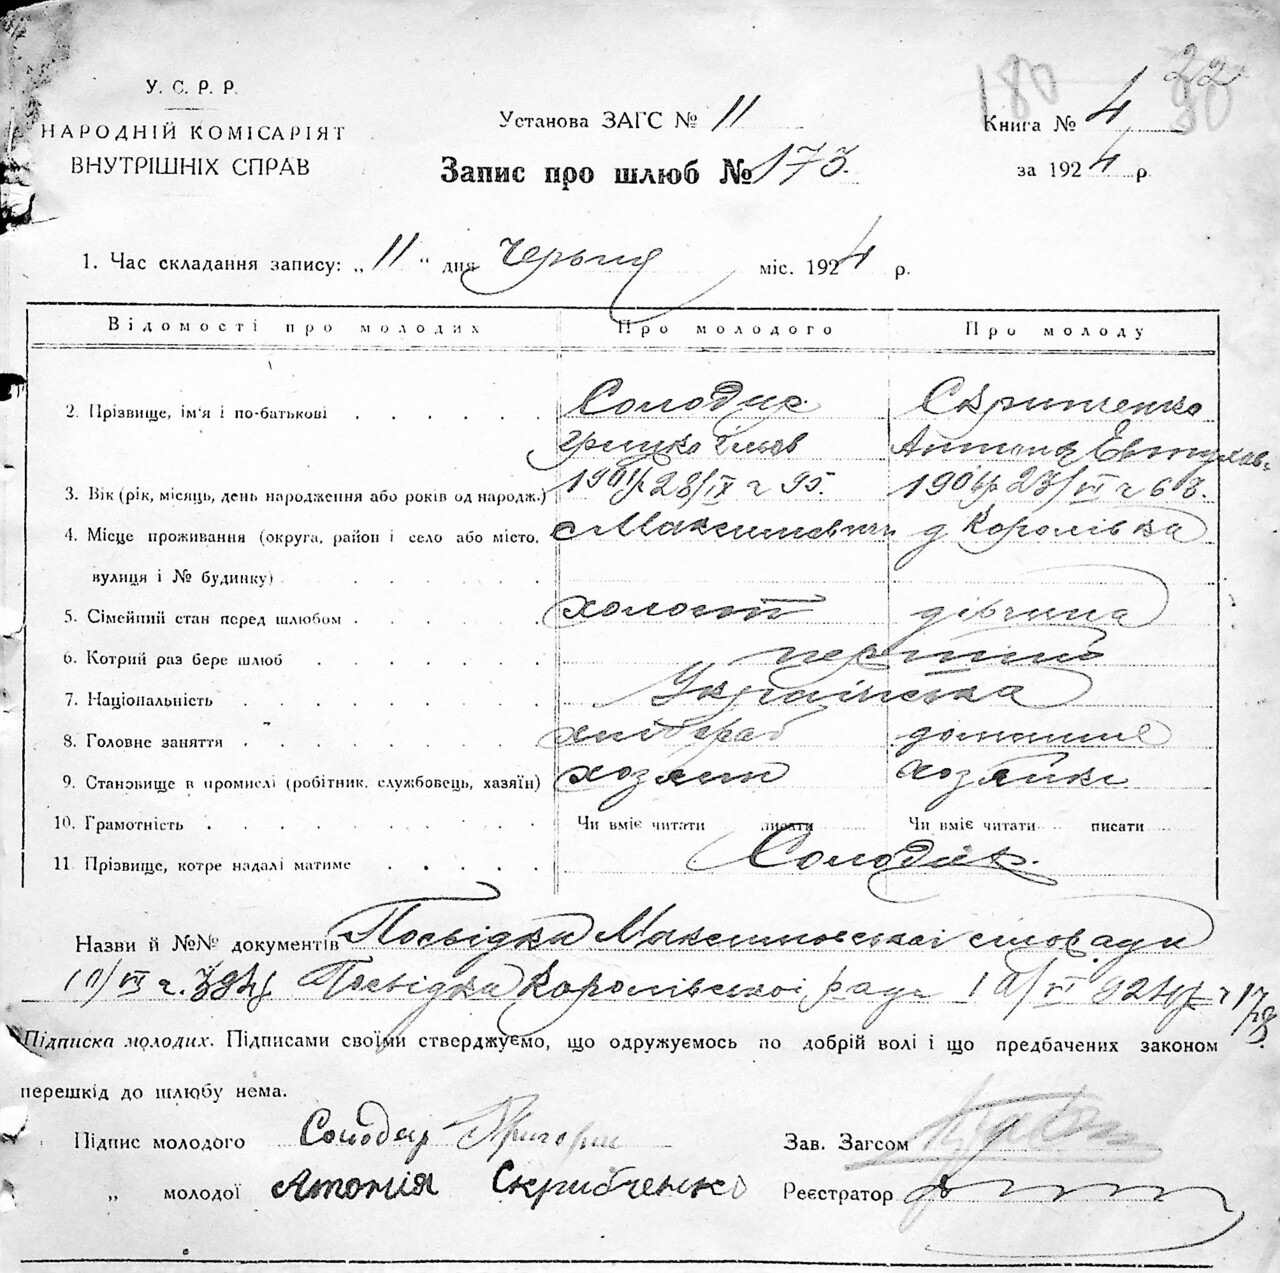 180 22
У. С. Р. Р. 30
НАРОДНІЙ КОМІСАРІЯТ
ВНУТРІШНІХ СПРАВ
Установа ЗАГС № 11
Книга № 4
Запис про шлюб № 173.
за 1924 р.
1. Час складання запису: „ 11 “ дня червня міс. 1924 р.
Відомості про молодих Про молодого Про молоду
2. Прізвище, ім'я і по-батькові Солодир Скритченко
Грицко Ілків Антонія
3. Вік (рік, місяць, день народження або років од народж.)
4. Місце проживання (округа, район і село або місто, с Максимович д Королівка
вулиця і № будинку)
5. Сімейний стан перед шлюбом холост дівчина
6. Котрий раз бере шлюб перший
7. Національність Українська
8. Головне заняття хлібороб домашнє
9. Становище в промислі (робітник, службовець, хазяїн) хозяин хозяйка
10. Грамотність Чи вміє читати писати Чи вміє читати писати
11. Прізвище, котре надалі матиме Солодир.
Назви й №№ документів Посвідки Максимовської сілоради
Посвідка Королівської ради
Підписка молодих. Підписами своїми стверджуємо, що одружуємось по добрій волі і що предбачених законом
перешкід до шлюбу нема.
Підпис молодого Солодир Григорій Зав. Загсом
„ молодої Антонія Скрибченко Реєстратор